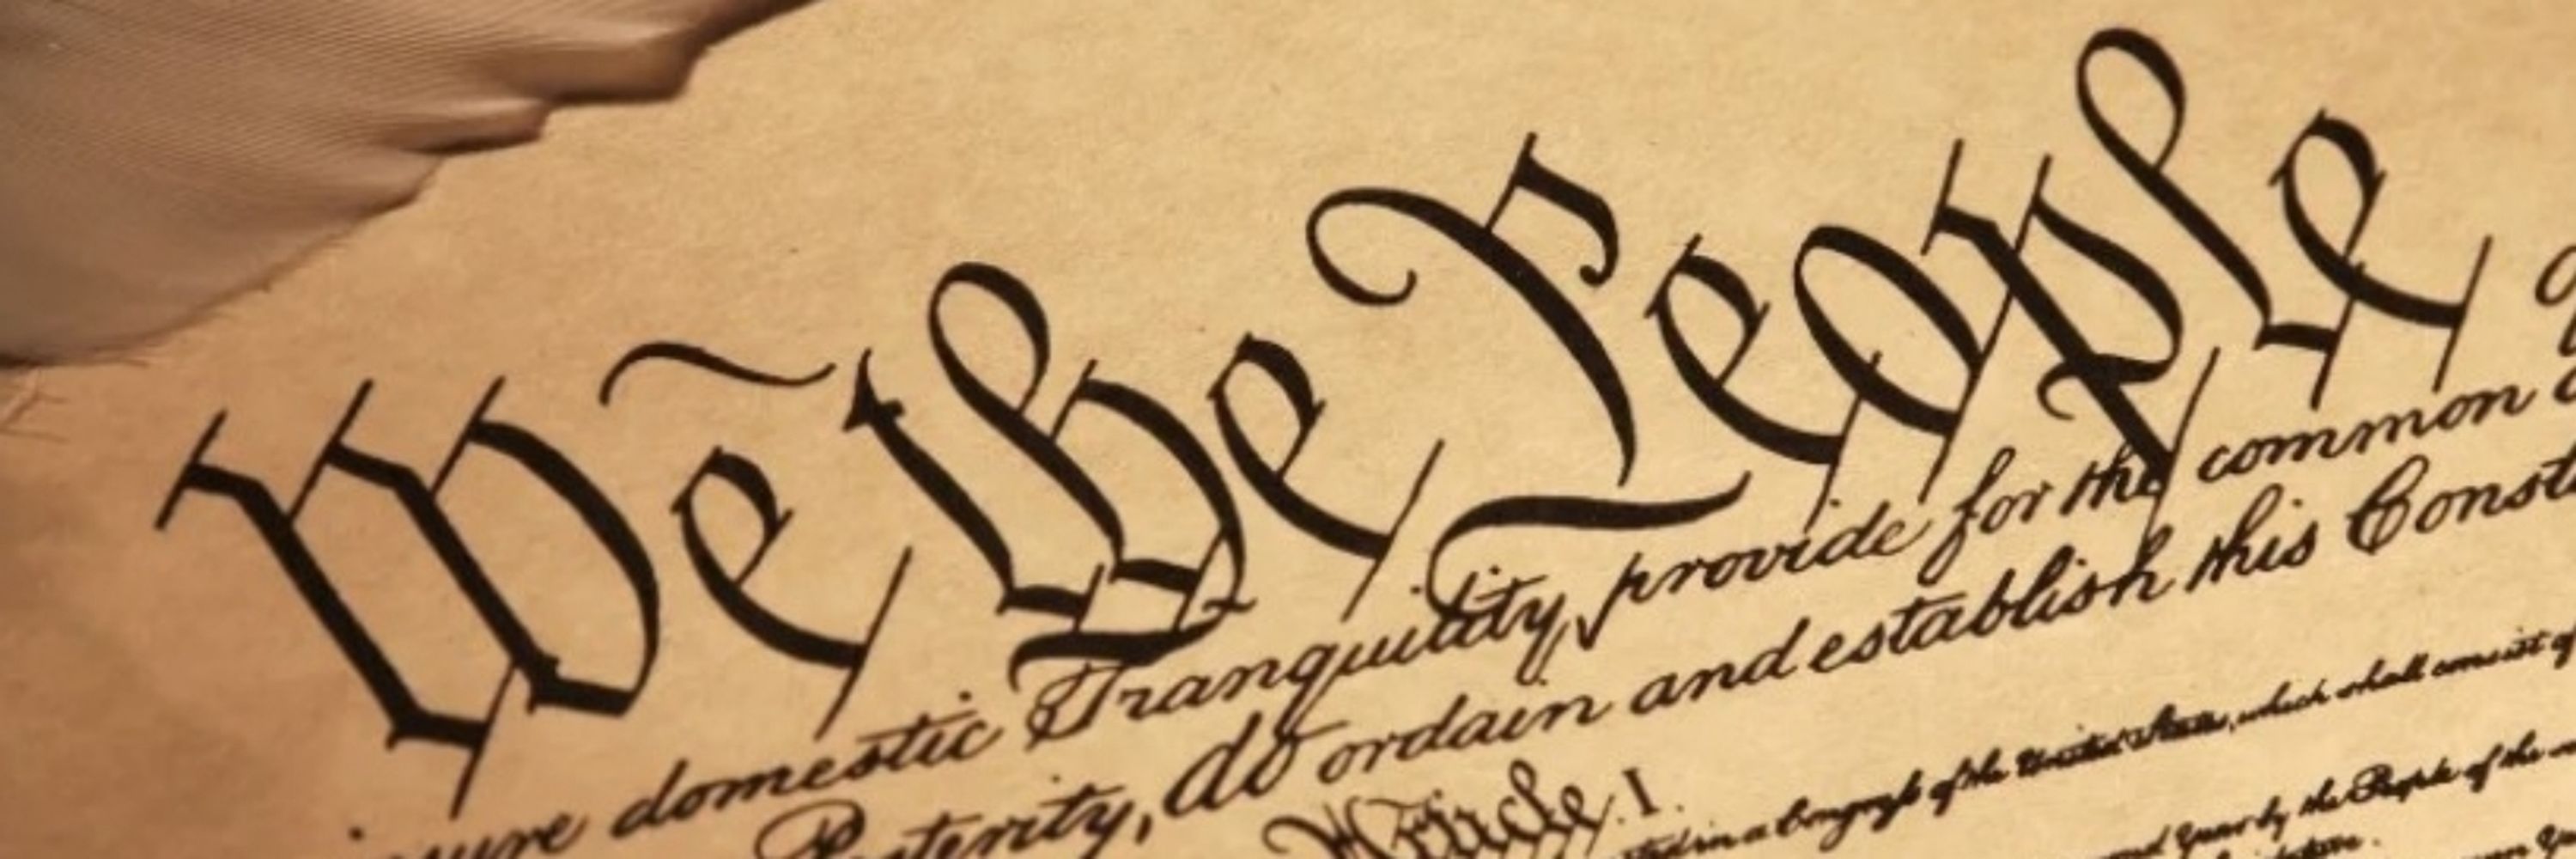 We the People
domestic Tranquility, provide for the common
Posterity, do ordain and establish this Const
Article. I.
in a Congress of the United States, which shall consist of
Year by the People of the